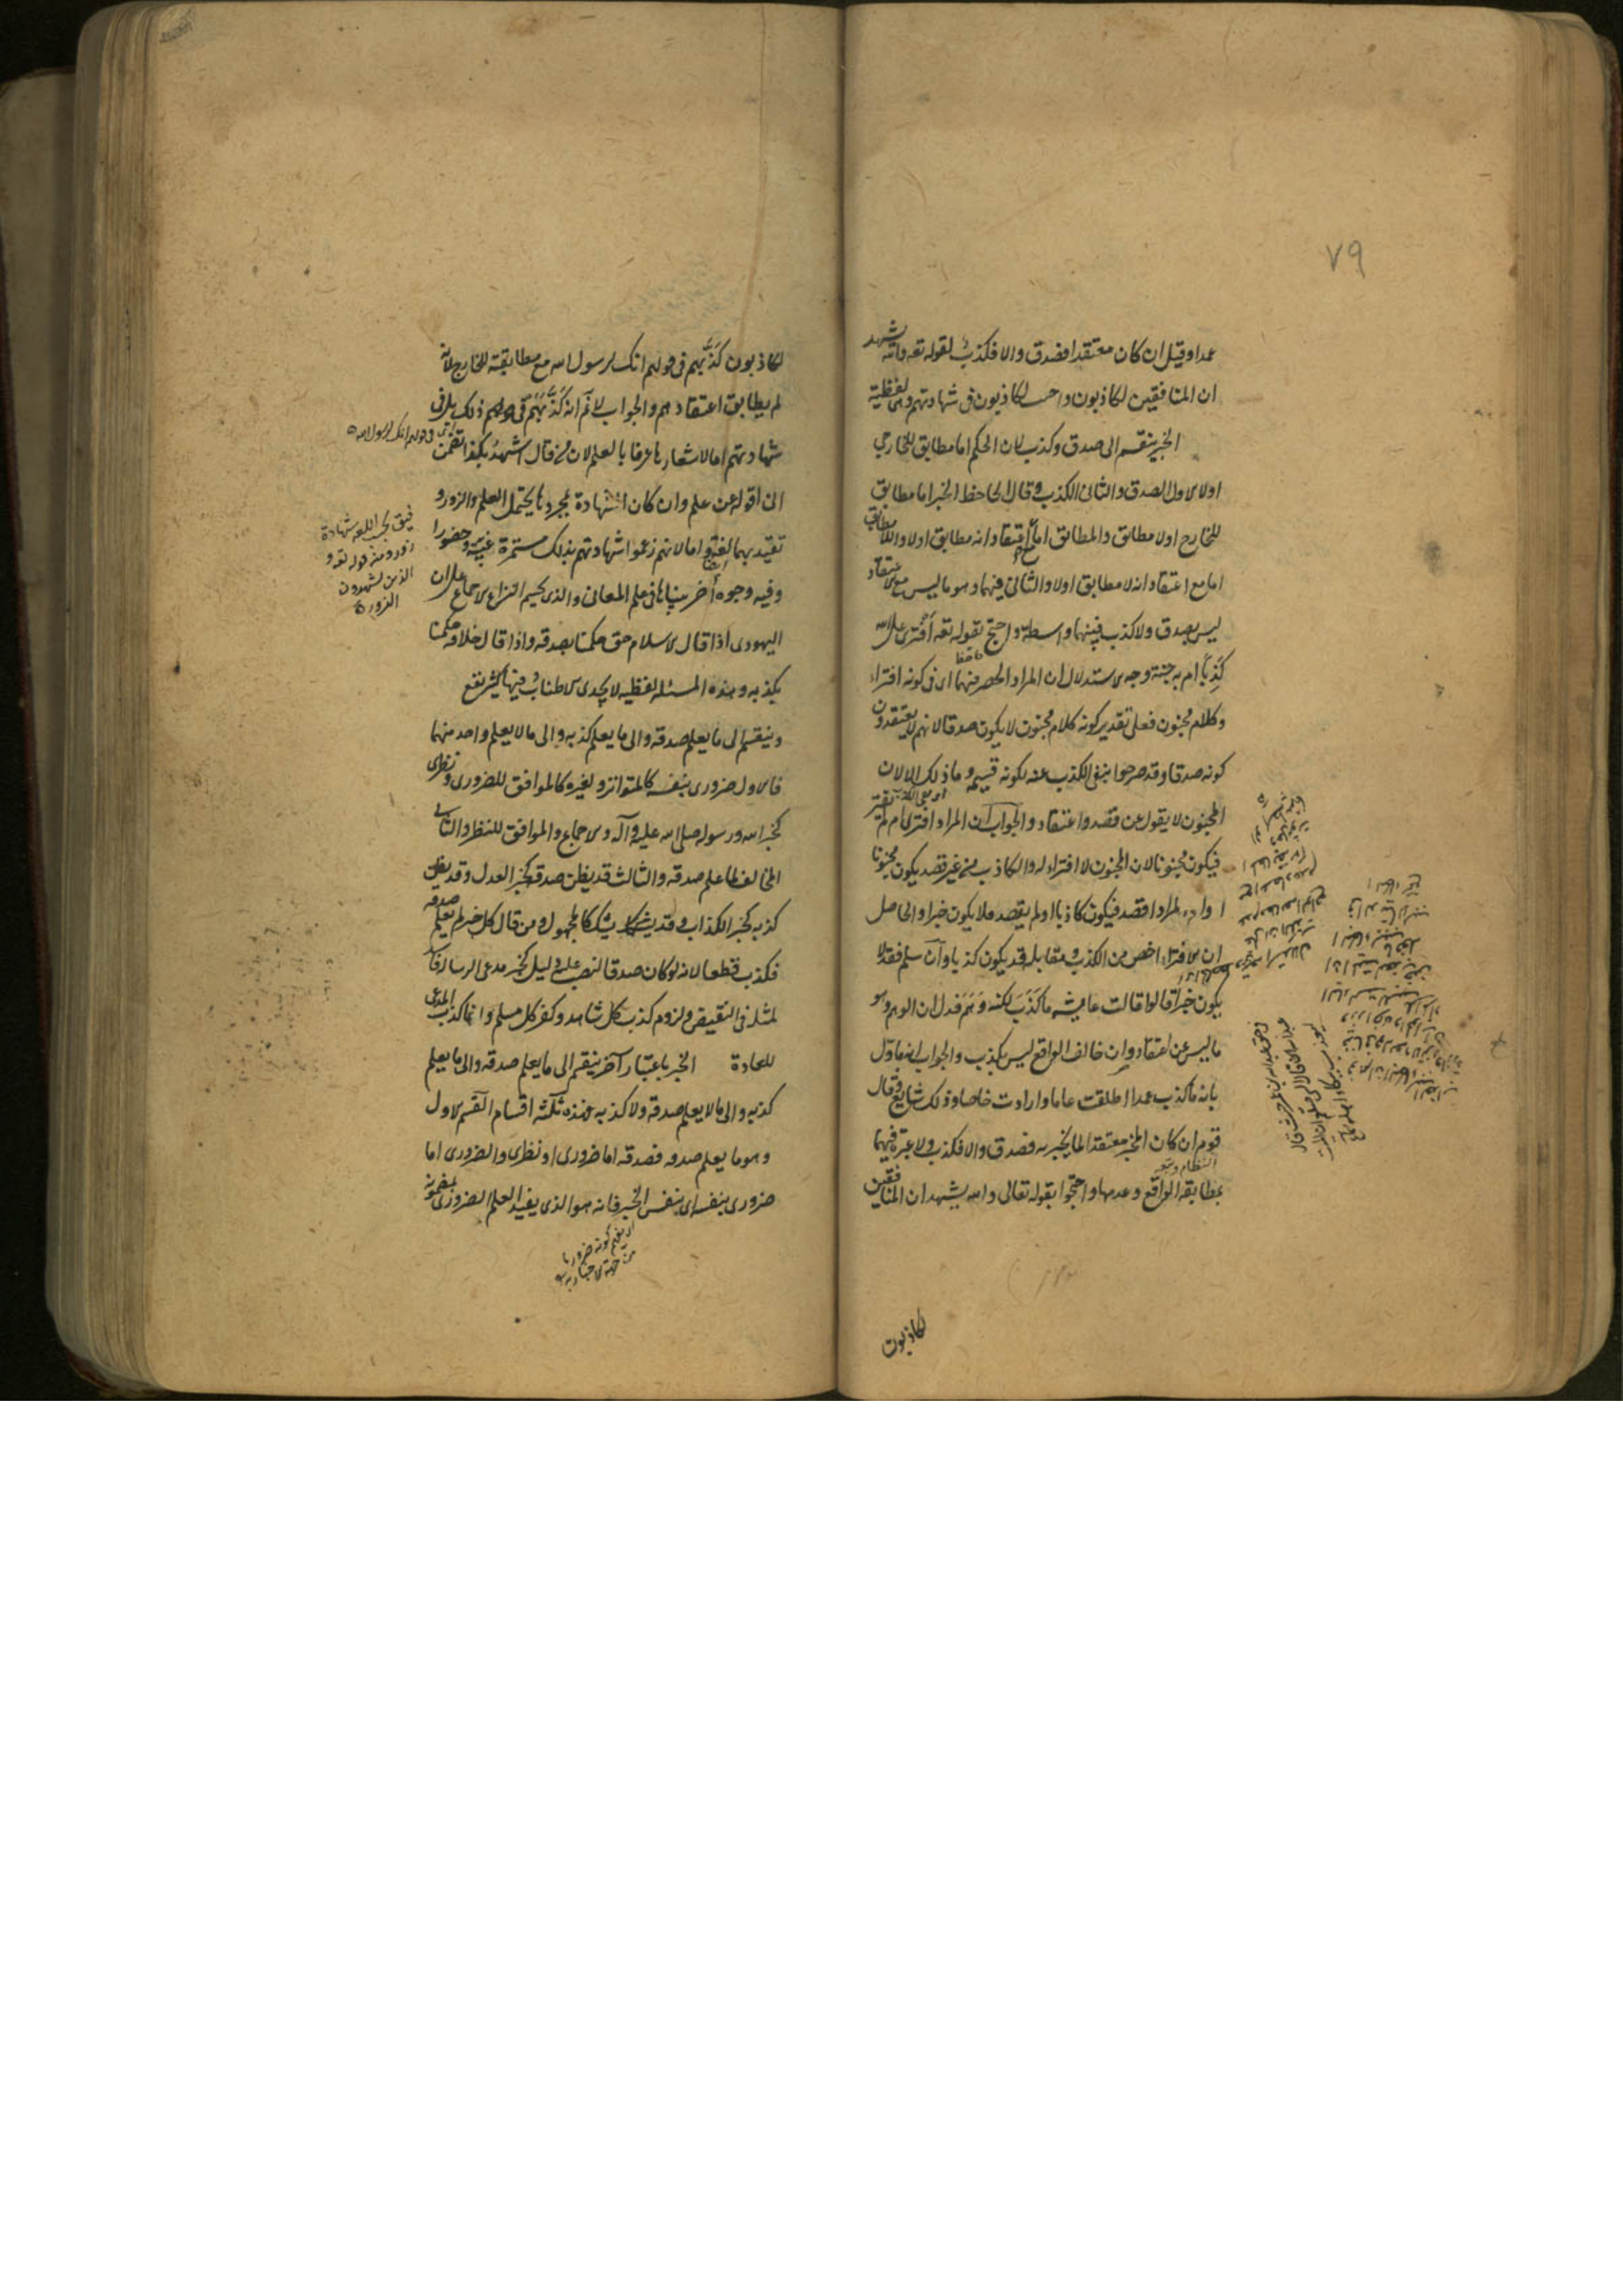 ٧٩
عمدا وقيل ان كان معتقدا فصدق والا فكذب لقوله تعه والله يشهد
ان المنافقين لكاذبون واجيب لكاذبون فى شهادتهم وهى لفظية
الخبر ينقسم الى صدق وكذب لان الحكم اما مطابق للخارجي
اولا الاول الصدق والثانى الكذب وقال الجاحظ الخبر اما مطابق
للخارج اولا مطابق والمطابق اما مع اعتقاد انه مطابق اولا واللامطابق
اما مع اعتقاد انه لا مطابق اولا والثانى فيهما وهو ما ليس مع الاعتقاد
ليس بصدق ولا كذب فبينهما واسطة واحتج بقوله تعه أفترى على الله
كذبا ام به جنة وجه الاستدلال ان المراد الحصر فيهما اى فى كونه افتراء
وكلام مجنون فعلى تقدير كونه كلام مجنون لا يكون صدقا لانهم لا يعتقدون
كونه صدقا وقد صرحوا بنفى الكذب عنه لكونه قسيمه وما ذلك الا لان
المجنون لا يقول عن قصد واعتقاد والجواب ان المراد افترى ام لم يفتر
فيكون مجنونا لان المجنون لا افتراء له والكاذب من غير قصد يكون مجنونا
او المراد اقصد فيكون كاذبا او لم يقصد فلا يكون خبرا والحاصل
ان الافتراء اخص من الكذب ومقابله قد يكون كذبا وان سلم فقد لا
يكون خبرا قالوا قالت عايشه ما كذب لكنه وهم فدل ان الوهم وهو
ما ليس عن اعتقاد وان خالف الواقع ليس بكذب والجواب انه ماول
بانه ما كذب عمدا اطلقت عاما وارادت خاصا وذلك شايع وقال
قوم ان كان المخبر معتقدا لما يخبر به فصدق والا فكذب ولا عبرة فيهما
النظام وتبعه
بمطابقة الواقع وعدمها واحتجوا بقوله تعالى والله يشهد ان المنافقين
لكاذبون
لكاذبون كذبهم فى قولهم انك لرسول الله مع مطابقته للخارج لانه
لم يطابق اعتقادهم والجواب لا نم انه كذبهم فى قولهم ذلك بل فى
شهادتهم اما لاشعارها عرفا بالعلم لان من قال اشهد بكذا تضمن
اى فى قولهم انك لرسول الله
انى اقوله عن علم وان كان الشهادة بمجردها يحتمل العلم والزور و
تقيد بهما لغة واما لانهم زعموا شهادتهم بذلك مستمرة غيبة وحضورا
فيق بحسب اللغه شهادة
زور ومنه قوله تعه و
الذين لا يشهدون
الزور
وفيه وجوه أخر بيناها فى علم المعانى والذى يحسم النزاع الاجماع على ان
اليهودى اذا قال الاسلام حق حكمنا بصدقه واذا قال خلافه حكمنا
بكذبه وهذه المسئله لفظيه لا يجدى الاطناب فيها كثير نفع
وينقسم الى ما يعلم صدقه والى ما يعلم كذبه والى ما لا يعلم واحد منهما
فالاول ضرورى بنفسه كالمتواتر ولغيره كالموافق للضرورى ونظرى
كخبر الله ورسوله صلى الله عليه وآله والاجماع والموافق للنظر والثانى
المخالف لما علم صدقه والثالث قد يظن صدقه كخبر العدل وقد يظن
كذبه كخبر الكذاب وقد يشك كالمجهول ومن قال كل خبر لم يعلم صدقه
فكذب قطعا لانه لو كان صدقا لنصب عليه دليل كخبر مدعى الرسالة فاسد
لمثله فى النقيض ولزوم كذب كل شاهد وكفر كل مسلم وانما كذب المدعى
للعادة الخبر باعتبار آخر ينقسم الى ما يعلم صدقه والى ما يعلم
كذبه والى ما لا يعلم صدقه ولا كذبه فهذه ثلثة اقسام القسم الاول
وهو ما يعلم صدقه فصدقه اما ضرورى او نظرى والضرورى اما
ضرورى بنفسه اى بنفس الخبر فانه هو الذى يفيد العلم الضرورى بمضمونه